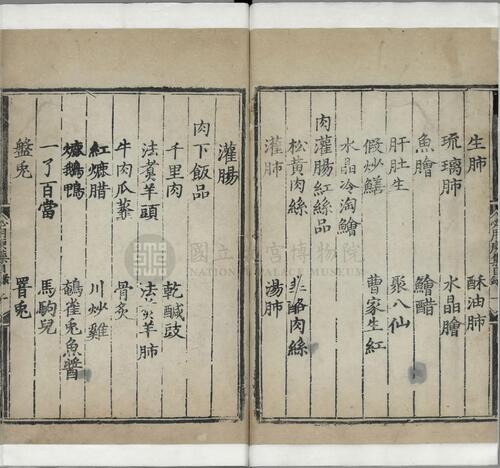 生肺 酥油肺
琉璃肺 水晶膾
魚膾 鱠醋
肝肚生 聚八仙
假炒鱔 曹家生紅
水晶冷淘鱠
肉灌腸紅絲品
松黃肉絲 韭酪肉絲
灌肺 湯肺
灌腸
肉下飯品
千里肉 乾鹹豉
法煑羊頭 法煑羊肺
牛肉瓜虀 骨炙
紅爊腊 川炒雞
爊鵝鴨 鵪雀兎魚醬
一了百當 馬駒兒
盤兎 署兎
國立故宮博物院
NATIONAL PALACE MUSEUM